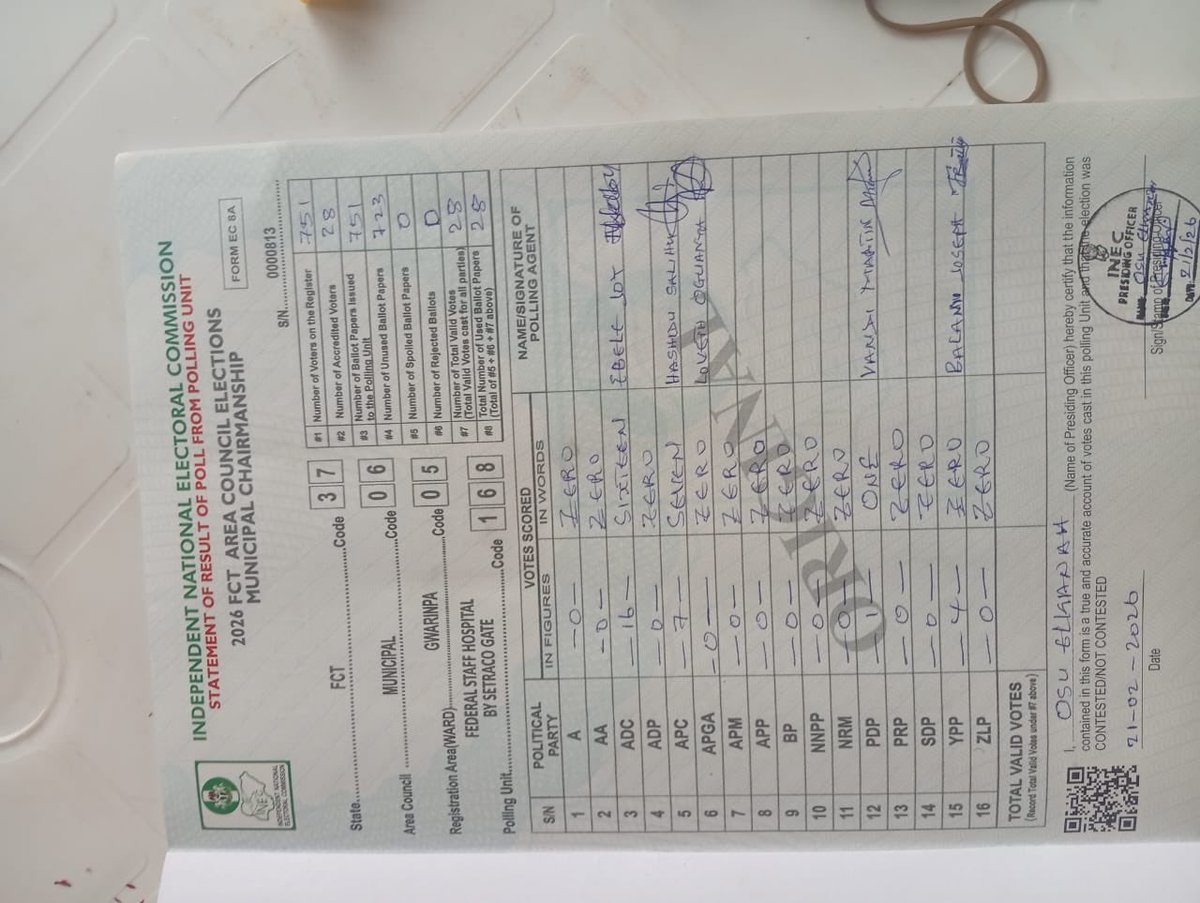 INDEPENDENT NATIONAL ELECTORAL COMMISSION
STATEMENT OF RESULT OF POLL FROM POLLING UNIT
2026 FCT AREA COUNCIL ELECTIONS
MUNICIPAL CHAIRMANSHIP
FORM EC 8A
S/N 0000813
INDEPENDENT NATIONAL ELECTORAL COMMISSION
State FCT Code 3 7
Area Council MUNICIPAL Code 0 6
Registration Area(WARD) GWARINPA Code 0 5
FEDERAL STAFF HOSPITAL
Polling Unit BY SETRACO GATE Code 1 6 8
#1 Number of Voters on the Register 751
#2 Number of Accredited Voters 28
#3 Number of Ballot Papers Issued to the Polling Unit 751
#4 Number of Unused Ballot Papers 723
#5 Number of Spoiled Ballot Papers 0
#6 Number of Rejected Ballots 0
#7 Number of Total Valid Votes (Total Valid Votes cast for all parties) 28
#8 Total Number of Used Ballot Papers (Total of #5 + #6 + #7 above) 28
S/N POLITICAL PARTY VOTES SCORED IN FIGURES IN WORDS NAME/SIGNATURE OF POLLING AGENT
1 A —0— ZERO
2 AA —0— ZERO
3 ADC 16— SIXTEEN EBELE JOY
4 ADP —0— ZERO
5 APC —7— SEVEN HASHIDU SALIHU
6 APGA —0— ZERO LOVETH
7 APM —0— ZERO
8 APP —0— ZERO
9 BP —0— ZERO
10 NNPP —0— ZERO
11 NRM —0— ZERO
12 PDP —1— ONE VANDI MARTIN
13 PRP —0— ZERO
14 SDP —0— ZERO
15 YPP —4— ZERO JOSEPH
16 ZLP —0— ZERO
TOTAL VALID VOTES
(Record Total Valid Votes under #7 above)
ORIGINAL
I, OSU ELKANAH (Name of Presiding Officer) hereby certify that the information
contained in this form is a true and accurate account of votes cast in this polling Unit and that the election was
CONTESTED/NOT CONTESTED
21-02-2026
Date
Sign/Stamp of Presiding Officer
INEC
PRESIDING OFFICER